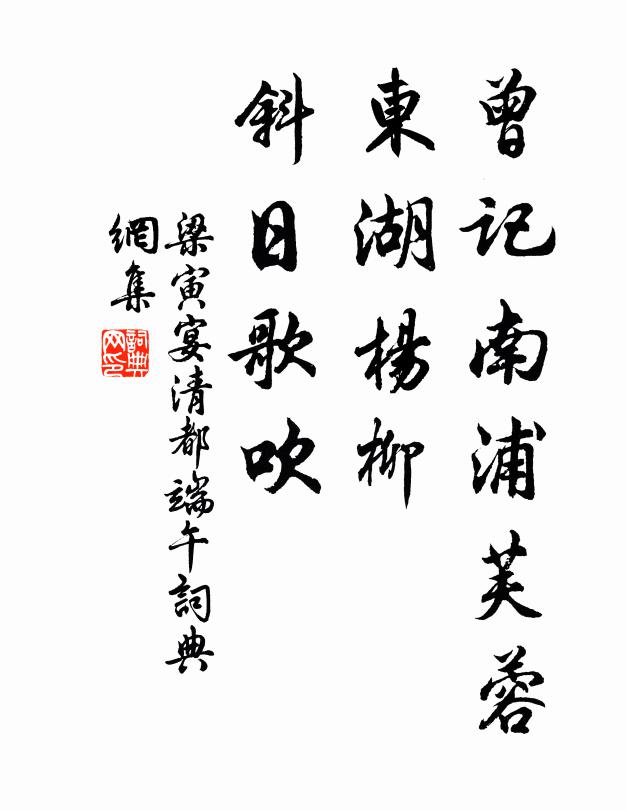 曾記南浦芙蓉
東湖楊柳
斜日歌吹
梁寅宴清都端午詞典
網集
詞典网印